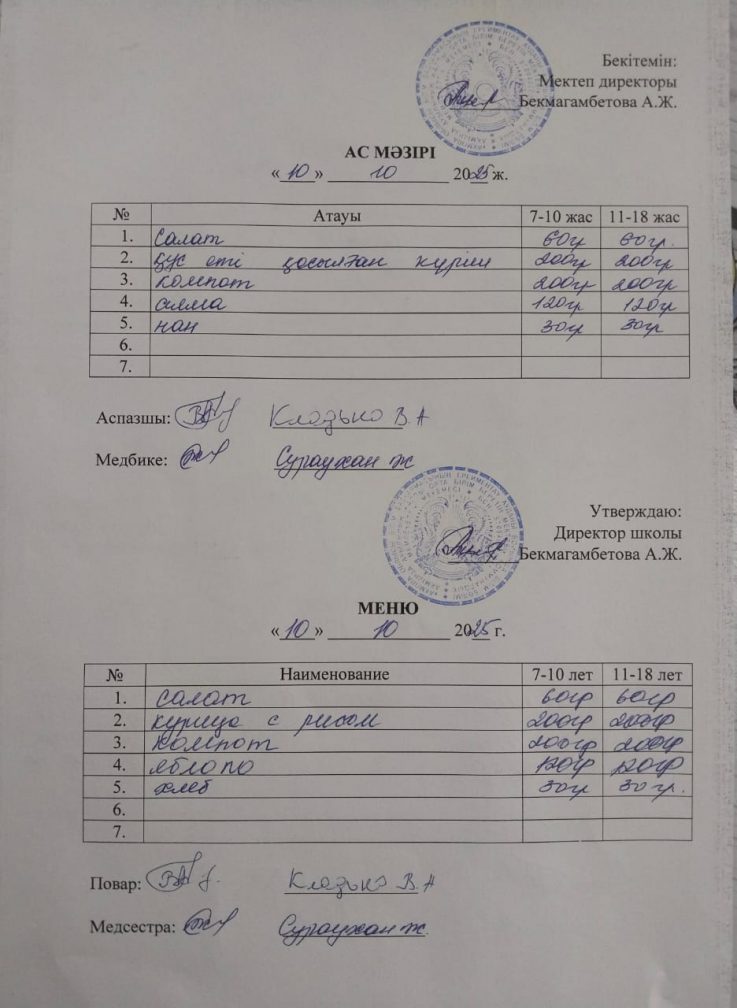 Бекітемін:
Мектеп директоры
Бекмагамбетова А.Ж.
АС МӘЗІРІ
«10» 10 2025 ж.
№ Атауы 7-10 жас 11-18 жас
1. Салат 60гр 60гр.
2. Құс еті қосылған күріш 200гр 200гр
3. компот 200гр 200гр
4. алма 120гр 120гр
5. нан 30гр 30гр
6.
7.
Аспазшы: Клазько В.А
Медбике: Сураухан Ж
Утверждаю:
Директор школы
Бекмагамбетова А.Ж.
МЕНЮ
«10» 10 2025 г.
№ Наименование 7-10 лет 11-18 лет
1. салат 60гр 60гр
2. курица с рисом 200гр 200гр
3. компот 200гр 200гр
4. яблоко 120гр 120гр
5. хлеб 30гр 30гр.
6.
7.
Повар: Клазько В.А
Медсестра: Сураухан Ж.